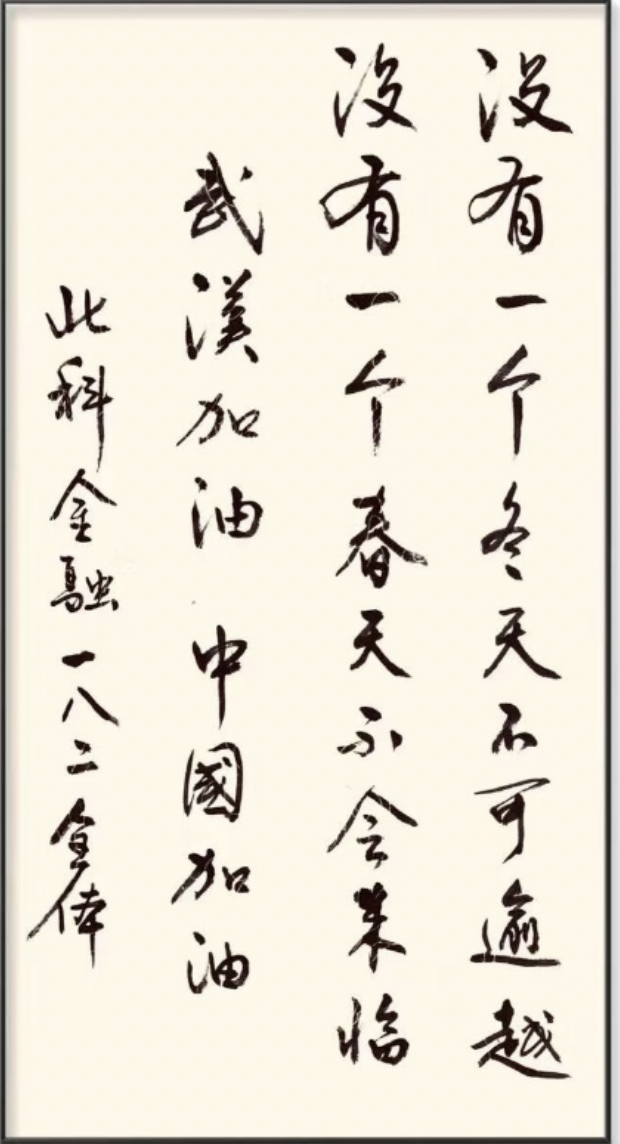 没有一个冬天不可逾越
没有一个春天不会来临
武漢加油 中國加油
北科金融一八二全体